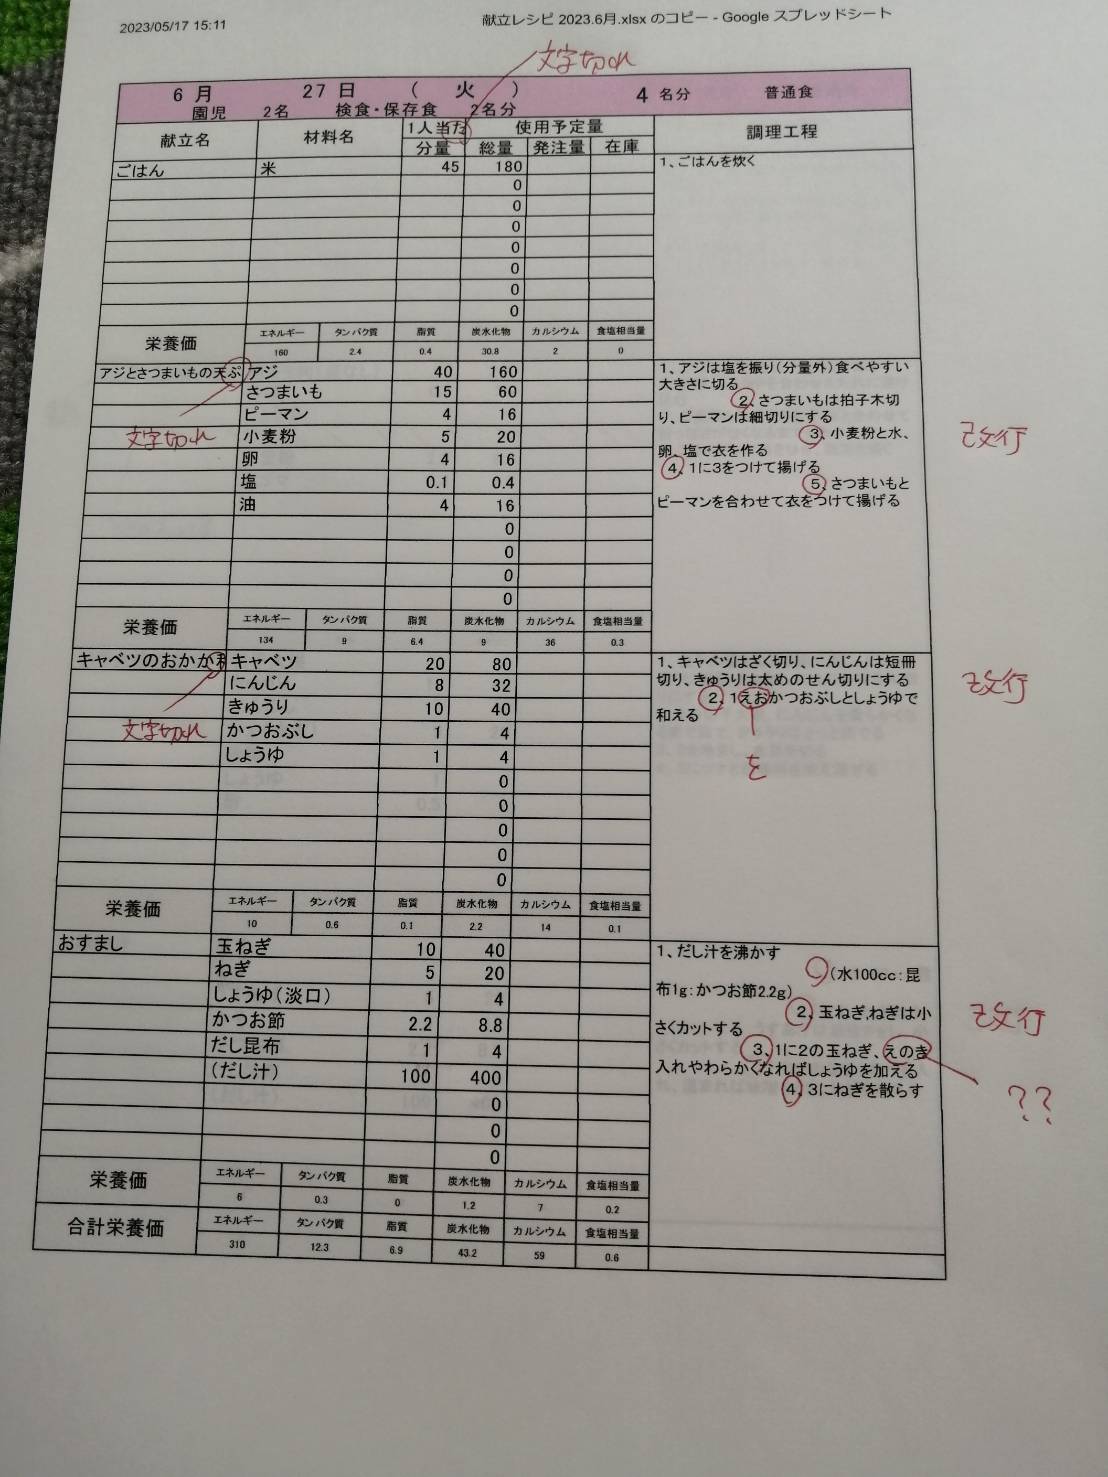 2023/05/17 15:11
献立レシピ 2023.6月.xlsx のコピー - Google スプレッドシート
文字切れ
6 月 27 日 ( 火 ) 4 名分 普通食
園児 2名 検食・保存食 2名分
献立名 材料名 1人当た 使用予定量 調理工程
分量 総量 発注量 在庫
ごはん 米 45 180 1、ごはんを炊く
0
0
0
0
0
0
0
栄養価 エネルギー タンパク質 脂質 炭水化物 カルシウム 食塩相当量
160 2.4 0.4 30.8 2 0
アジとさつまいもの天ぷ アジ 40 160 1、アジは塩を振り(分量外)食べやすい
さつまいも 15 60 大きさに切る
ピーマン 4 16 2、さつまいもは拍子木切
文字切れ 小麦粉 5 20 り、ピーマンは細切りにする
卵 4 16 3、小麦粉と水、
改行
塩 0.1 0.4 卵、塩で衣を作る
油 4 16 4、1に3をつけて揚げる
0 5、さつまいもと
0 ピーマンを合わせて衣をつけて揚げる
0
0
栄養価 エネルギー タンパク質 脂質 炭水化物 カルシウム 食塩相当量
134 9 6.4 9 36 0.3
キャベツのおかか和 キャベツ 20 80 1、キャベツはざく切り、にんじんは短冊
にんじん 8 32 切り、きゅうりは太めのせん切りにする
改行
きゅうり 10 40 2、1えおかつおぶしとしょうゆで
文字切れ かつおぶし 1 4 和える
しょうゆ 1 4
を
0
0
0
0
0
栄養価 エネルギー タンパク質 脂質 炭水化物 カルシウム 食塩相当量
10 0.6 0.1 2.2 14 0.1
おすまし 玉ねぎ 10 40 1、だし汁を沸かす
ねぎ 5 20 (水100cc:昆
しょうゆ(淡口) 1 4 布1g:かつお節2.2g)
かつお節 2.2 8.8 2、玉ねぎ,ねぎは小
改行
だし昆布 1 4 さくカットする
(だし汁) 100 400 3、1に2の玉ねぎ、えのき
0 入れやわらかくなればしょうゆを加える
0 4、3にねぎを散らす
??
0
栄養価 エネルギー タンパク質 脂質 炭水化物 カルシウム 食塩相当量
6 0.3 0 1.2 7 0.2
合計栄養価 エネルギー タンパク質 脂質 炭水化物 カルシウム 食塩相当量
310 12.3 6.9 43.2 59 0.6